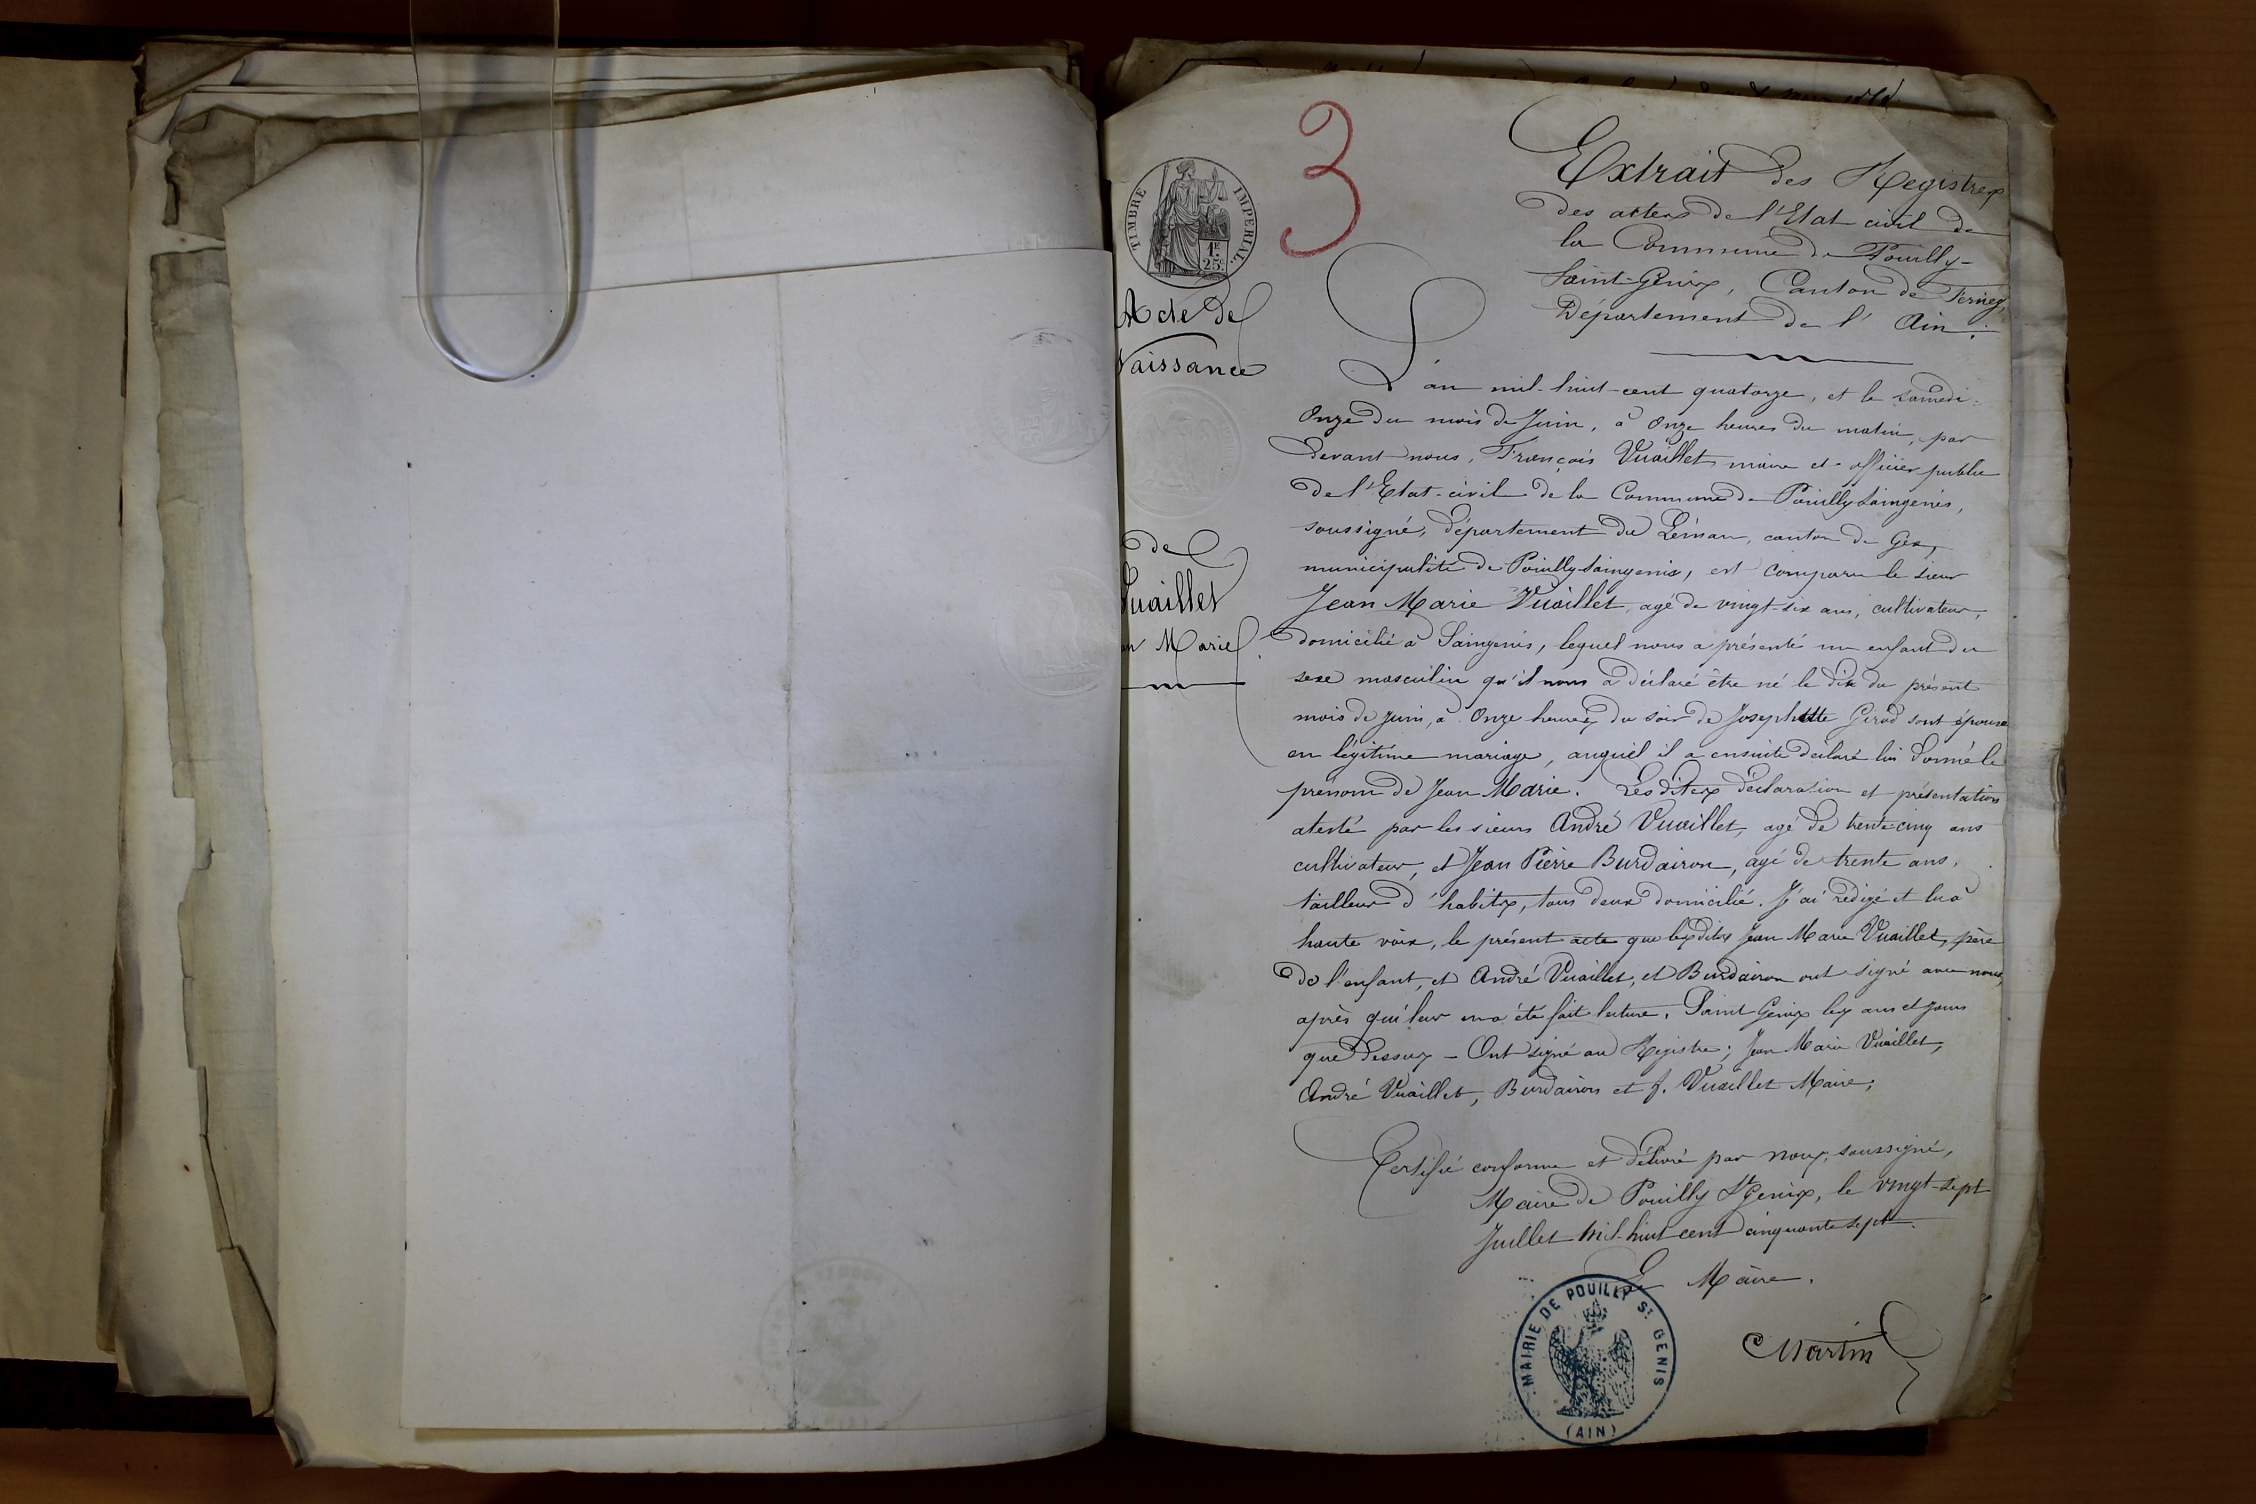 3
TIMBRE IMPERIAL.
1F
25c
Acte de
Naissance
de
Vuaillet
Marie
Extrait des Registres
des actes de l'Etat civil de
la Commune de Pouilly-
Saint-Genix, Canton de Ferney,
Département de l'Ain.
L'an mil-huit-cent quatorze, et le samedi
onze du mois de Juin, à onze heures du matin, par
devant nous, François Vuaillet, maire et officier public
de l'Etat-civil de la Commune de Pouilly Saingenis,
soussigné, département du Léman, canton de Gex,
municipalité de Pouilly Saingenis, est comparu le sieur
Jean Marie Vuaillet, agé de vingt-six ans, cultivateur,
domicilié à Saingenis, lequel nous a présenté un enfant du
sexe masculin qu'il nous a déclaré être né le dix du présent
mois de juin, à onze heures du soir de Josephtte Girod sont épouse
en légitime mariage, auquel il a ensuite déclaré lui donné le
prénom de Jean Marie. Les dites déclaration et présentation
atesté par les sieurs André Vuaillet, agé de trente cinq ans
cultivateur, et Jean Pierre Burdairon, agé de trente ans,
tailleur d'habits, tous deux domicilié. J'ai rédigé et lu à
haute voix, le présent acte que les dits Jean Marie Vuaillet, père
de l'enfant, et André Vuaillet, et Burdairon ont signé avec nous,
après qu'leur en a été fait lecture. Saint Genix les ans et jours
que dessus - Ont signé au Registre; Jean Marie Vuaillet,
André Vuaillet, Burdairon et f. Vuaillet Maire;
Certifié conforme et délivré par nous, soussigné,
Maire de Pouilly St Genix, le vingt-sept
Juillet mil-huit cent cinquante sept.
Le Maire.
MAIRIE DE POUILLY ST. GENIS
(AIN)
Martin